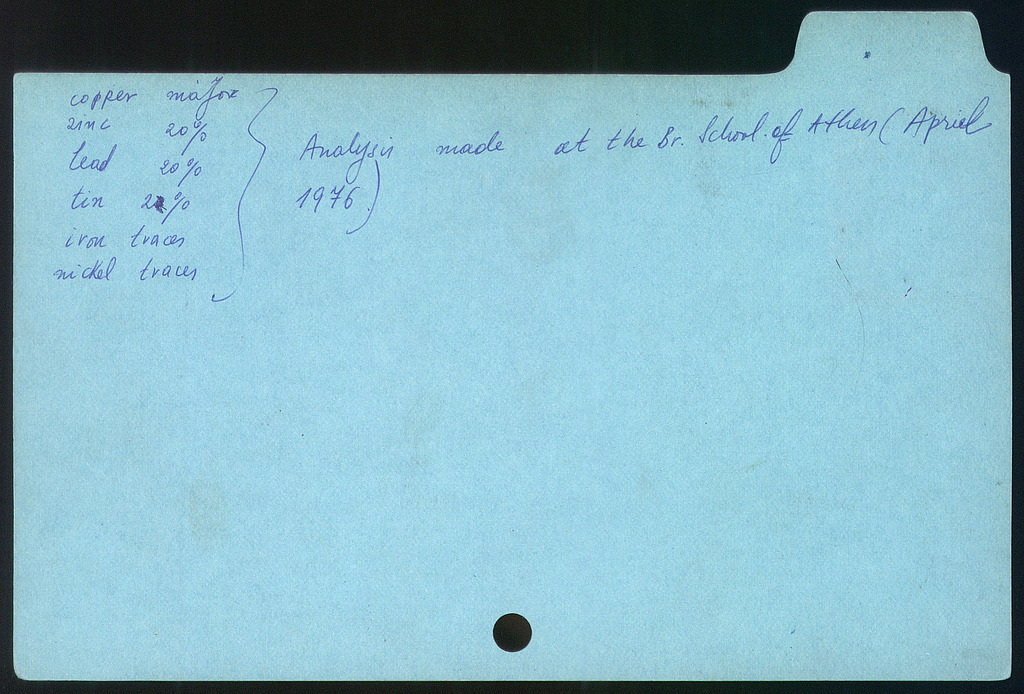 copper major
zinc 20%
lead 20%
tin 2%
iron traces
nickel traces
Analysis made at the Br. School of Athens (Apriel
1976)